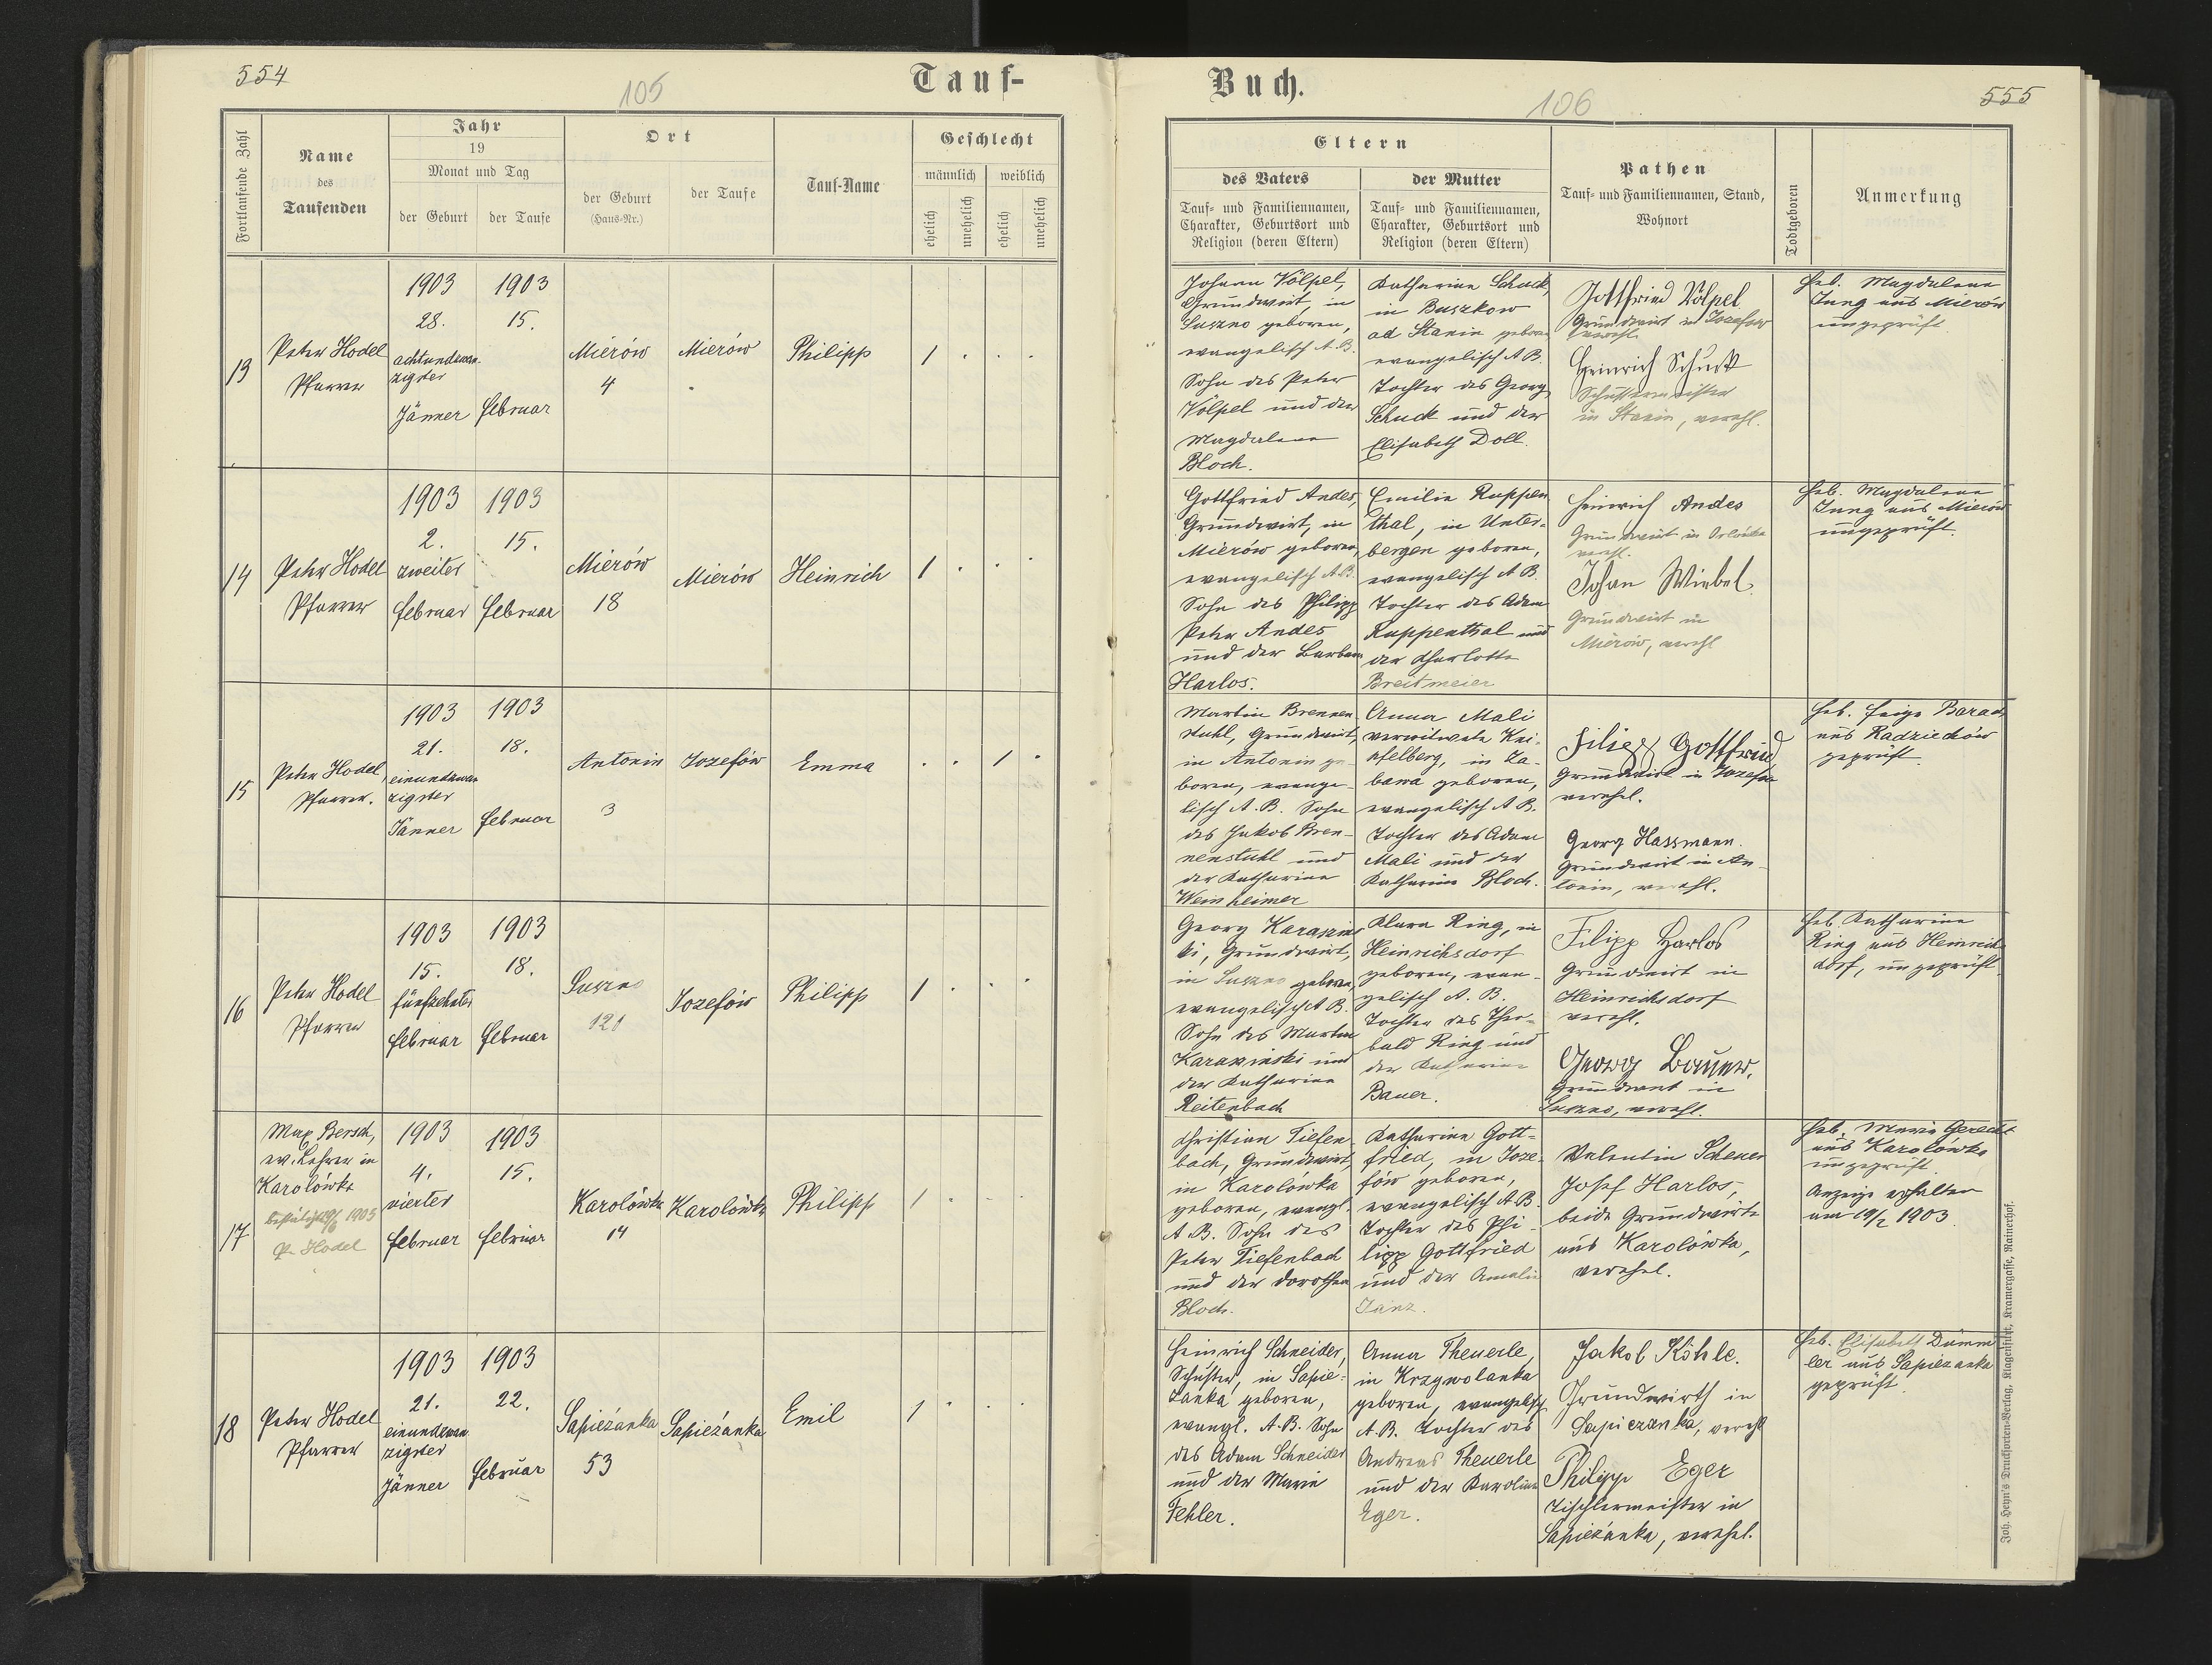 554
105
Tauf-
Fortlaufende Zahl
Name
des
Taufenden
Jahr
19
Monat und Tag
der Geburt
der Taufe
Ort
der Geburt
(Haus-Nr.)
der Taufe
Tauf-Name
Geschlecht
männlich
weiblich
ehelich
unehelich
ehelich
unehelich
13
Peter Hodel
Pfarrer
1903
28.
achtundzwan-
zigster
Jänner
1903
15.
Februar
Mierów
4
Mierów
Philipp
1
14
Peter Hodel
Pfarrer
1903
2.
zweiter
Februar
1903
15.
Februar
Mierów
18
Mierów
Heinrich
1
15
Peter Hodel,
Pfarrer.
1903
21.
einundzwan
zigster
Jänner
1903
18.
Februar
Antonin
3
Jozefów
Emma
1
16
Peter Hodel
Pfarrer
1903
15.
fünfzehnter
Februar
1903
18.
Februar
Suszno
121
Jozefów
Philipp
1
17
Max Bersch,
ev. Lehrer in
Karolówka
Hodel
1903
4.
vierter
Februar
1903
15.
Februar
Karolówka
14
Karolówka
Philipp
1
18
Peter Hodel
Pfarrer
1903
21.
einundzwan
zigster
Jänner
1903
22.
Februar
Sapieżanka
53
Sapieżanka
Emil
1
Buch.
106
555
Eltern
des Vaters
Tauf- und Familiennamen,
Charakter, Geburtsort und
Religion (deren Eltern)
der Mutter
Tauf- und Familiennamen,
Charakter, Geburtsort und
Religion (deren Eltern)
Pathen
Tauf- und Familiennamen, Stand,
Wohnort
Todtgeboren
Anmerkung
Johann Völpel,
Grundwirt, in
Suszno geboren,
evangelisch A.B.
Sohn des Peter
Völpel und der
Magdalena
Bloch.
Katharina Schuck,
in Buszkow
ad Stanin geboren
evangelisch A B.
Tochter des Georg
Schuck und der
Elisabeth Doll.
Gottfried Völpel
Grundwirt in Jozefow
verehl.
Heinrich Schuck
Schustermeister
in Stanin, verehl.
Heb. Magdalena
Jung aus Mierów
ungeprüft
Gottfried Andes,
Grundwirt, in
Mierów geboren,
evangelisch A.B.
Sohn des Philipp
Peter Andes
und der Barbara
Harlos.
Emilie Ruppen
thal, in Unter-
bergen geboren,
evangelisch A B.
Tochter des Adam
Ruppenthal und
der Charlotte
Breitmeier
Heinrich Andes
Grundwirt in
verehl.
Johan Wiebel
Grundwirt in
Mierów, verehl
Heb. Magdalena
Jung aus Mierów
ungeprüft.
Martin Brennen
stuhl, Grundwirt,
in Antonin ge-
boren, evange-
lisch A. B. Sohn
des Jakob Bren-
nenstuhl und
der Katharina
Weinheimer
Anna Mali
verwitwete Kei-
pfelberg, in Za-
bawa geboren,
evangelisch A B.
Tochter des Adam
Mali und der
Katharina Bloch.
Filipp Gottfried
Grundwirt in Jozefow
verehel.
Georg Hassmann.
Grundwirt in An-
tonin, verehl.
Heb. Feige Barach
aus Radziechów
geprüft.
Georg Karaszins
ki, Grundwirt,
in Suszno geboren,
evangelisch A B.
Sohn des Martin
Karaszinski und
der Katharina
Reitenbach
Klara Ring, in
Heinrichsdorf
geboren, evan-
gelisch A. B.
Tochter des Theo-
bald Ring und
der Katharina
Bauer.
Filipp Harlos
Grundwirt in
Heinrichsdorf
verehl.
Georg Bauer.
Grundwirt in
Suszno, verehl.
Heb. Katharina
Ring aus Heinrichs
dorf, ungeprüft
Christian Tiefen-
bach, Grundwirt,
in Karolówka
geboren, evangl.
A B. Sohn des
Peter Tiefenbach
und der Dorothea
Bloch.
Katharina Gott-
fried, in Joze-
fów geboren,
evangelisch A B.
Tochter des Phi-
lipp Gottfried
und der Amalie
Janz.
Valentin Scheuer
Josef Harlos,
beide Grundwirte
aus Karolówka,
verehel.
Heb. Maria Gerecht
aus Karolówka
ungeprüft.
Anzeige erhalten
am 19/2 1903
Heinrich Schneider,
Schuster, in Sapie-
żanka geboren,
evangl. A.B. Sohn
des Adam Schneider
und der Marie
Fehler.
Anna Theuerle,
in Krzywolanka
geboren, evangelisch
A.B. Tochter des
Andreas Theuerle
und der Karoline
Eger.
Jakob Köhle.
Grundwirth in
Sapieżanka, verehl
Philipp Eger
Tischlermeister in
Sapieżanka, verehel.
Heb. Elisabeth Dümm
ler aus Sapieżanka
geprüft.
Joh. Heyn's Drucksorten-Verlag, Klagenfurt, Kramergasse, Rainerhof.